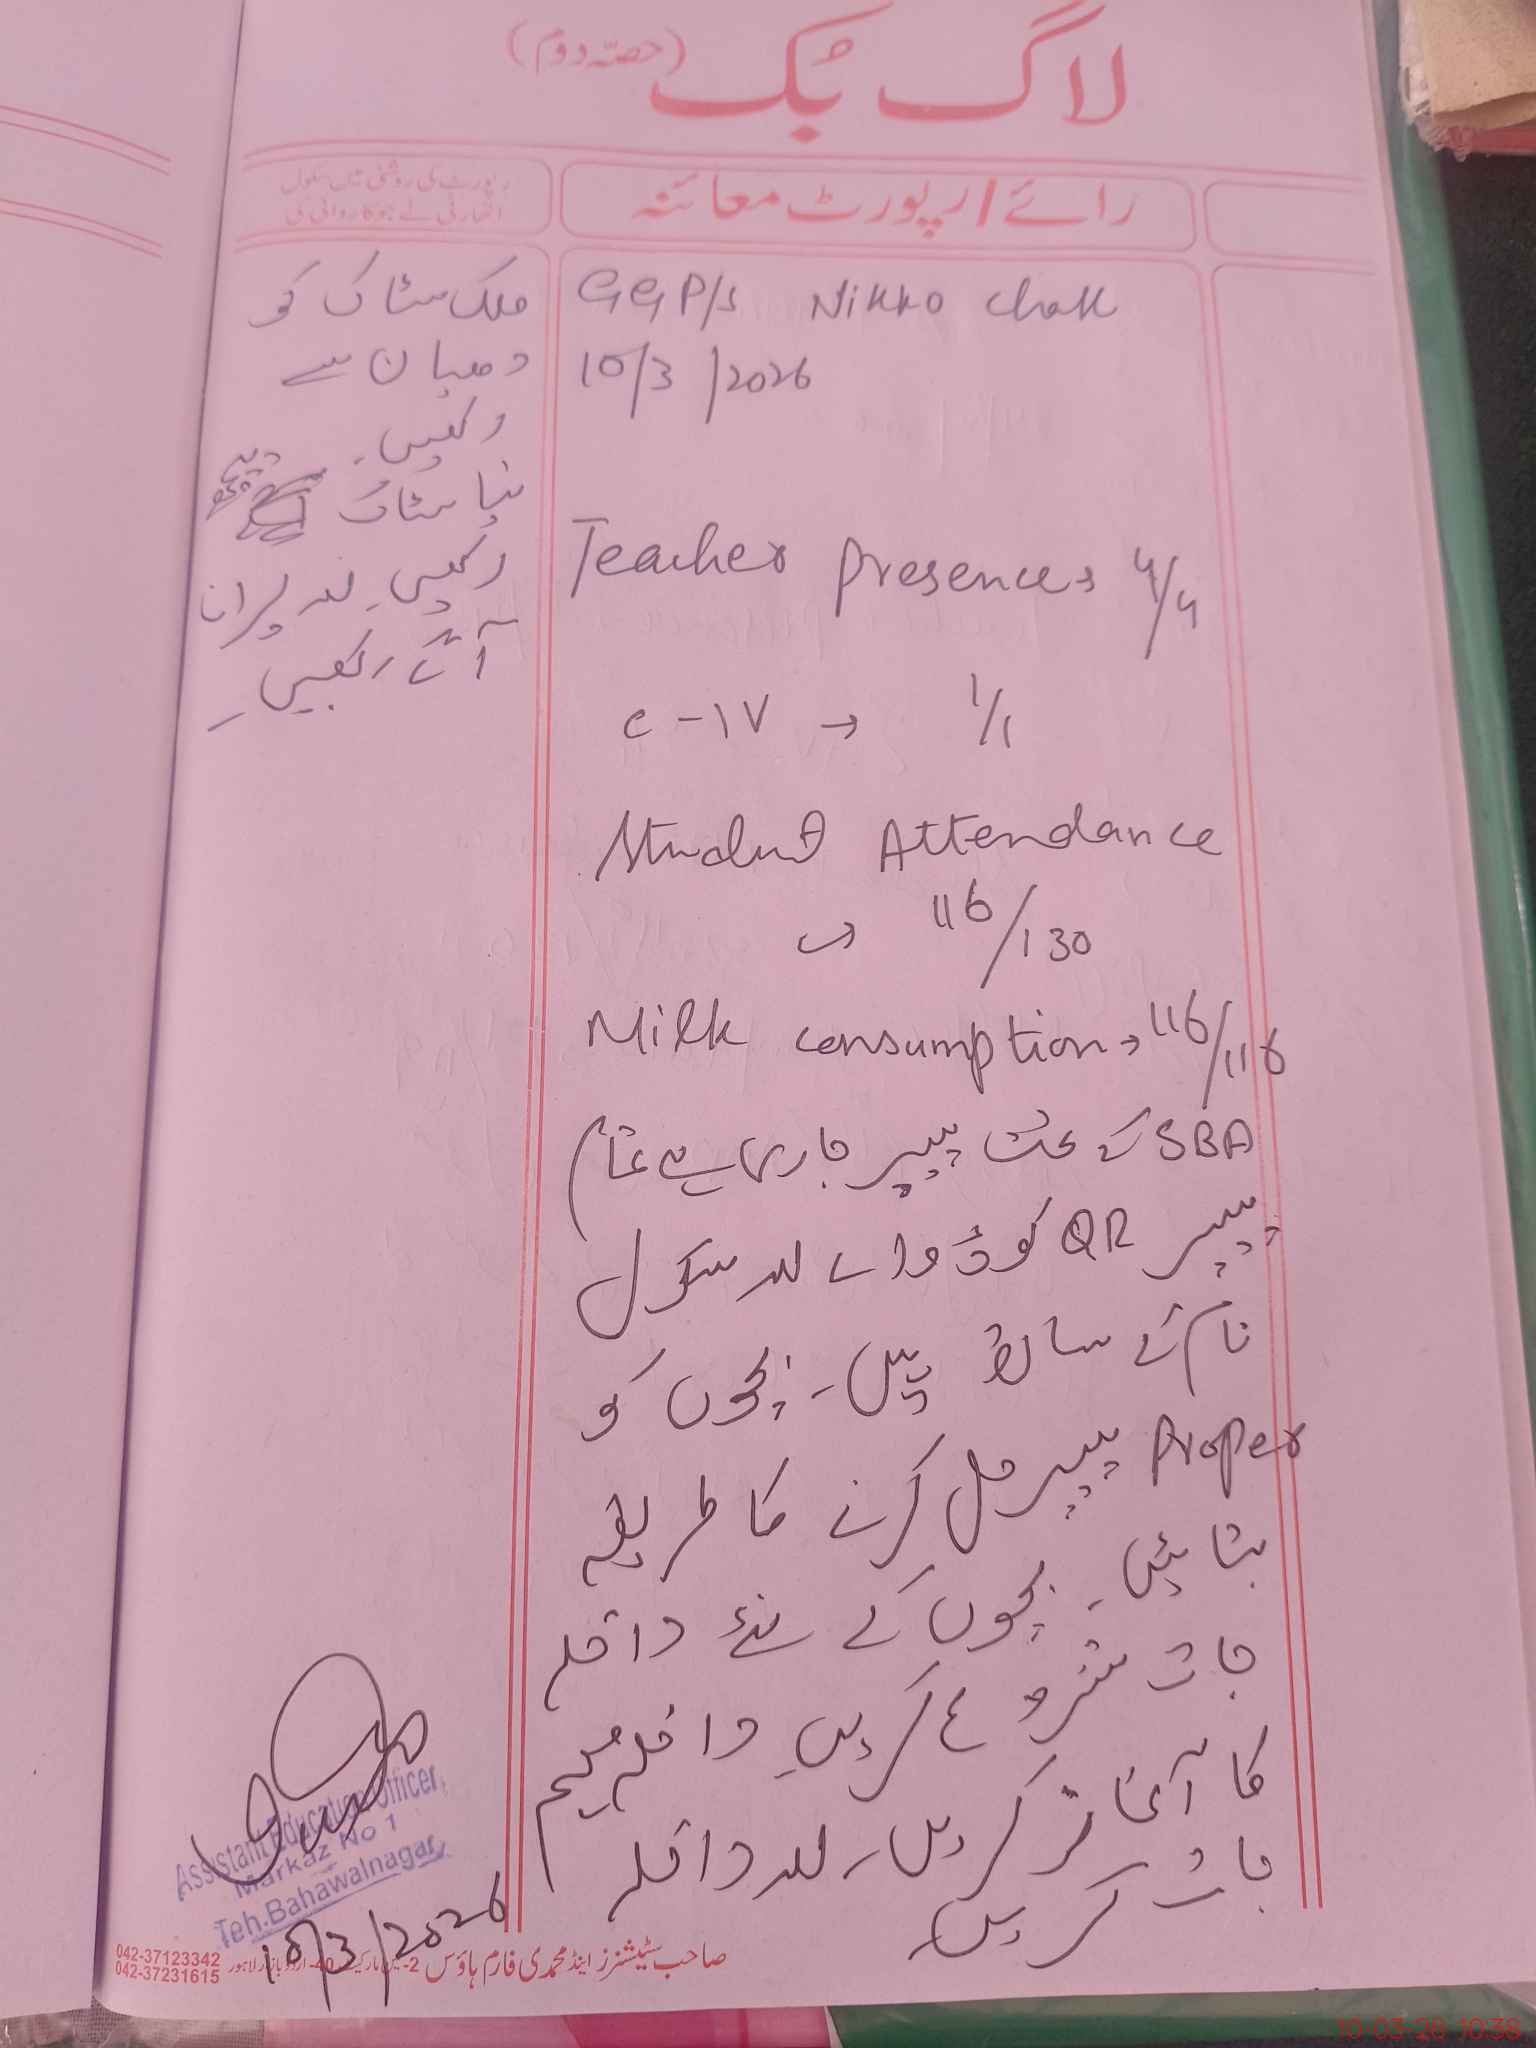 لاگ بُک (حصّہ دوم)
رائے / رپورٹ معائنہ
رپورٹ کی روشنی میں سکول
اتھارٹی نے جو کاروائی کی
GGP/S Nikko Chak
10/3/2026
Teacher Presence → 4/4
C-IV → 1/1
Student Attendance
→ 116/130
Milk consumption → 116/116
SBA کے تحت پیپر جاری ہے تمام
پیپر QR کوڈ والے اور سکول
نام کے ساتھ ہیں۔ بچوں کو
Proper پیپر حل کرنے کا طریقہ
بتائیں۔ بچوں کے نئے داخلہ
جات شروع کریں۔ داخلہ مہم
کا آغاز کریں۔ اور داخلہ
جات کریں۔
ملک سٹاک کو
دھیان سے
رکھیں۔
نیا سٹاک
رکھیں اور پرانا
آگے رکھیں۔
Assistant Education Officer
Markaz No 1
Teh. Bahawalnagar
10/3/2026
صاحب سٹیشنرز اینڈ محمدی فارم ہاؤس 2- اردو بازار لاہور
042-37123342
042-37231615
10-03-26 10:38